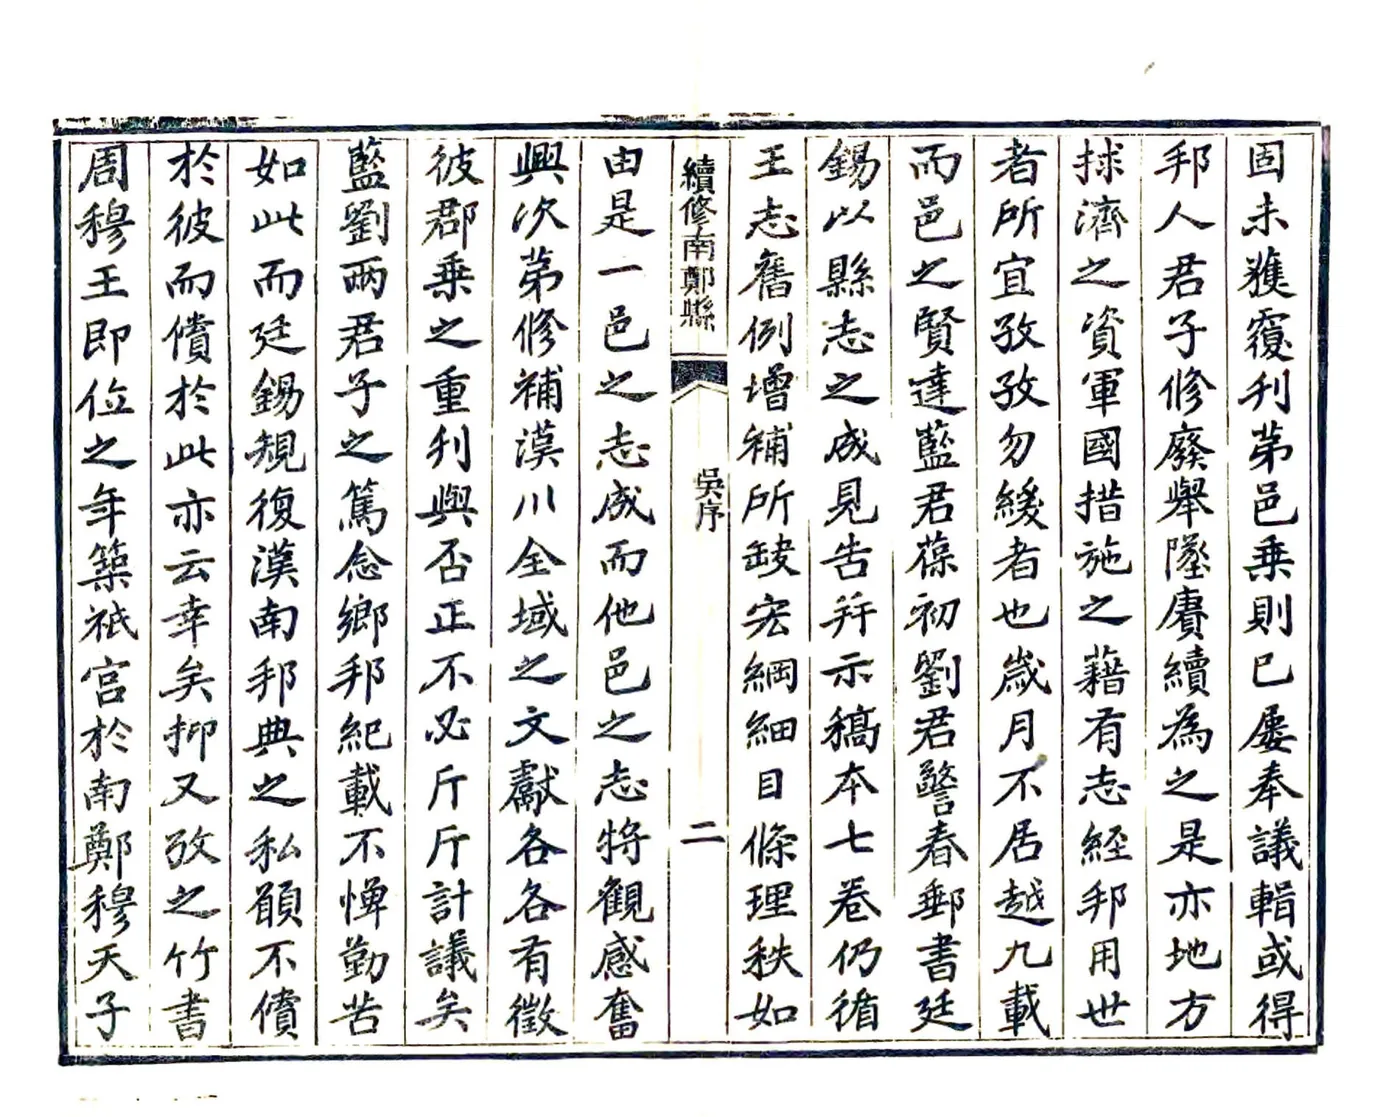 固未獲覆刋苐邑乗則已屡奉議輯或得
邦人君子修廢舉墜賡續為之是亦地方
捄濟之資軍國措施之藉有志經邦用世
者所宜孜孜勿緩者也歳月不居越九載
而邑之賢達藍君葆初劉君警春郵書廷
錫以縣志之成見告并示稿本七卷仍循
王志舊例增補所缺宏綱細目條理秩如
續修南鄭縣
吳序
二
由是一邑之志成而他邑之志將觀感奮
興次苐修補漢川全域之文獻各各有徵
彼郡乗之重刋與否正不必斤斤計議矣
藍劉兩君子之篤念鄉邦紀載不憚勤苦
如此而廷錫規復漢南邦典之私願不償
於彼而償於此亦云幸矣抑又攷之竹書
周穆王即位之年築祇宮於南鄭穆天子